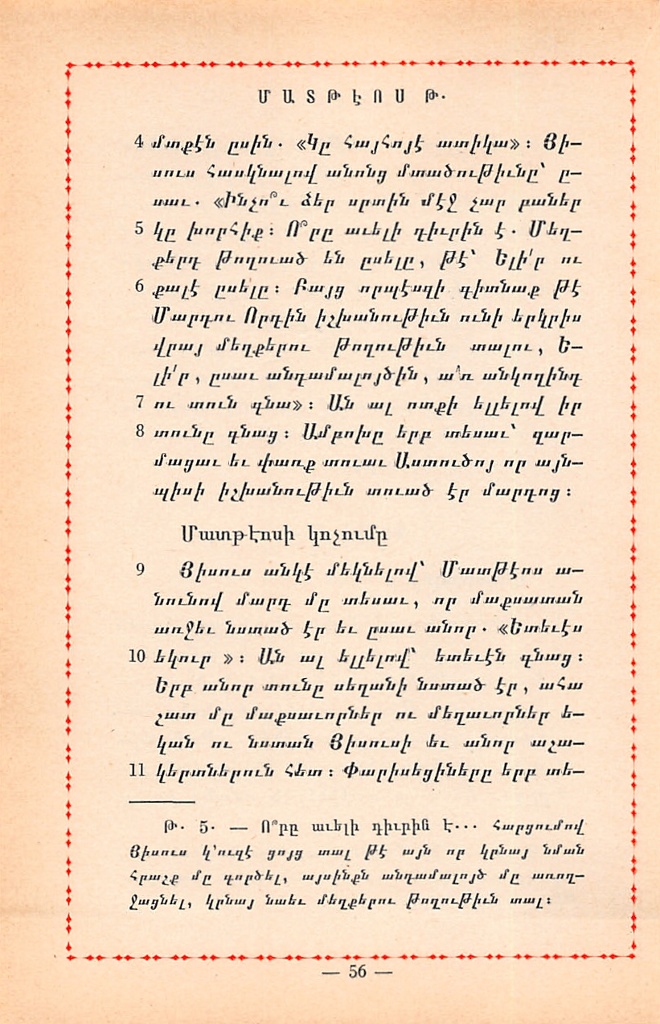 ՄԱՏԹԷՈՍ Թ.
4 մտքէն ըսին. «Կը հայհոյէ ատիկա»: Յի—
սուս հասկնալով անոնց մտածութիւնը՝ ը—
սաւ. «Ինչո՞ւ ձեր սրտին մէջ չար բաներ
5 կը խորհիք: Ո՞րը աւելի դիւրին է. Մեղ—
քերդ թողուած են ըսելը, թէ՝ Ելի՛ր ու
6 քալէ ըսելը: Բայց որպէսզի գիտնաք թէ
Մարդու Որդին իշխանութիւն ունի երկրիս
վրայ մեղքերու թողութիւն տալու, Ե—
լի՛ր, ըսաւ անդամալոյծին, ա՛ռ անկողինդ
7 ու տուն գնա»: Ան ալ ոտքի ելլելով իր
8 տունը գնաց: Ամբոխը երբ տեսաւ՝ զար—
մացաւ եւ փառք տուաւ Աստուծոյ որ այն—
պիսի իշխանութիւն տուած էր մարդոց:
Մատթէոսի կոչումը
9 Յիսուս անկէ մեկնելով՝ Մատթէոս ա—
նունով մարդ մը տեսաւ, որ մաքսատան
առջեւ նստած էր եւ ըսաւ անոր. «Ետեւէս
10 եկուր »: Ան ալ ելլելով՝ ետեւէն գնաց:
Երբ անոր տունը սեղանի նստած էր, ահա
շատ մը մաքսաւորներ ու մեղաւորներ ե—
կան ու նստան Յիսուսի եւ անոր աշա—
11 կերտներուն հետ: Փարիսեցիները երբ տե—
Թ. 5. — Ո՞րը աւելի դիւրին է... Հարցումով
Յիսուս կ՚ուզէ ցոյց տալ թէ այն որ կրնայ նման
հրաշք մը գործել, այսինքն անդամալոյծ մը առող—
ջացնել, կրնայ նաեւ մեղքերու թողութիւն տալ:
— 56 —